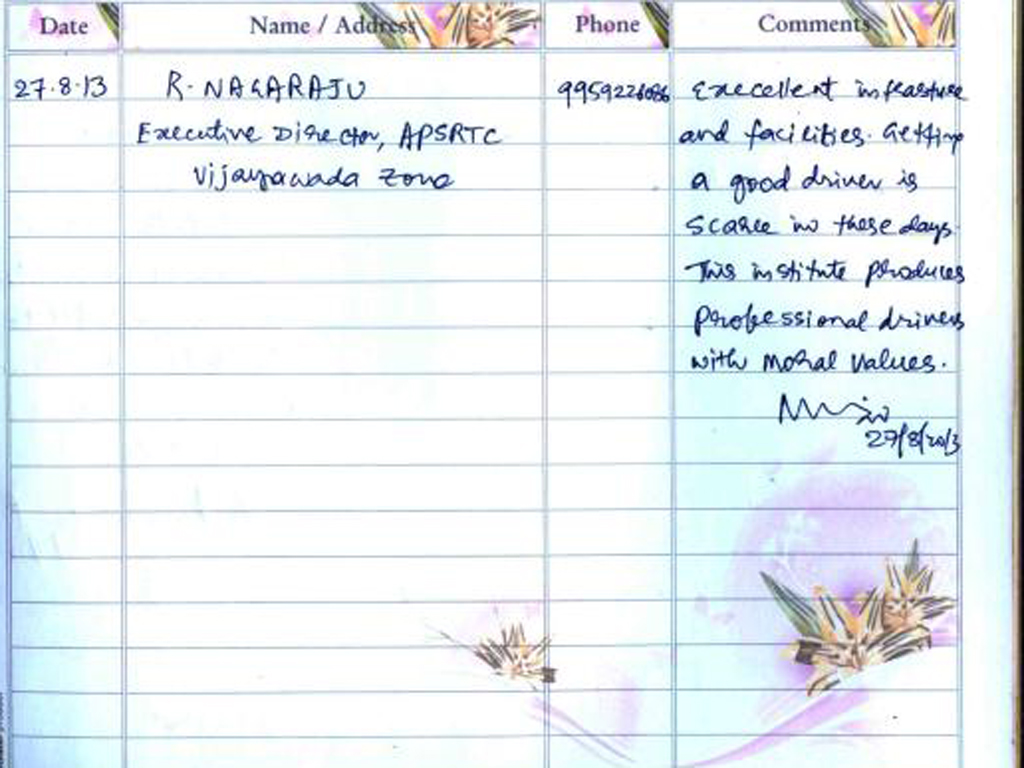 Date Name / Address Phone Comments
27.8.13 R. NAGARAJU 9959226086 Execellent infrasture
Executive Director, APSRTC and facilities. Getting
Vijayawada Zone a good driver is
scarce in these days
This institute produces
professional drivers
with moral values.
27/8/2013